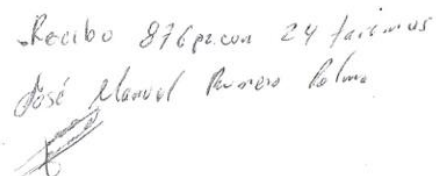 Recibo 876 pz. con 24 tarimas
José Manuel Romero Palma